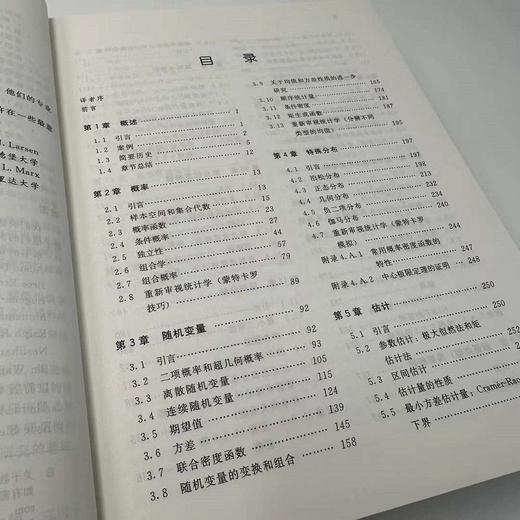 他们的专业
在一些最重
J. Larsen
德堡大学
L. Marx
里达大学
目 录
译者序
前言
第1章 概述 1
1.1 引言 1
1.2 案例 2
1.3 简要历史
1.4 章节总结
第2章 概率 13
2.1 引言 13
2.2 样本空间和集合代数 15
2.3 概率函数 23
2.4 条件概率 27
2.5 独立性 44
2.6 组合学 57
2.7 组合概率 79
2.8 重新审视统计学(蒙特卡罗
技巧) 89
第3章 随机变量 92
3.1 引言 92
3.2 二项概率和超几何概率 93
3.3 离散随机变量 105
3.4 连续随机变量 115
3.5 期望值 124
3.6 方差 139
3.7 联合密度函数 145
3.8 随机变量的变换和组合 158
3.9 关于均值和方差性质的进一步
研究 165
3.10 顺序统计量 174
3.11 条件密度 181
3.12 矩生成函数 187
3.13 重新审视统计学(分辨不同
类型的均值) 195
第4章 特殊分布 197
4.1 引言 197
4.2 泊松分布 198
4.3 正态分布 212
4.4 几何分布
4.5 负二项分布 232
4.6 伽马分布
4.7 重新审视统计学(蒙特卡罗
模拟)
附录4.A.1 常用概率密度函数的
特性
附录4.A.2 中心极限定理的证明
第5章 估计 250
5.1 引言 250
5.2 参数估计:极大似然法和矩
估计法 252
5.3 区间估计
5.4 估计量的性质
5.5 最小方差估计量:Cramér-Rao
下界